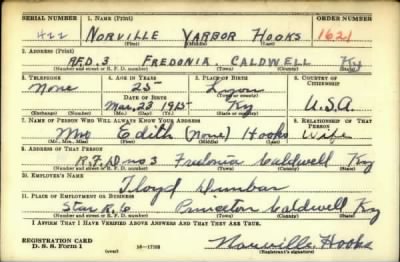 SERIAL NUMBER 1. NAME (Print) ORDER NUMBER
422 NORVILLE YARBOR HOOKS 1621
(First) (Middle) (Last)
2. ADDRESS (Print)
R.F.D. 3 FREDONIA. CALDWELL Ky
(Number and street or R. F. D. number) (Town) (County) (State)
3. TELEPHONE 4. AGE IN YEARS 5. PLACE OF BIRTH 6. COUNTRY OF CITIZENSHIP
None 25 Lyon
DATE OF BIRTH (Town or county)
Mar. 23 1915 Ky U.S.A.
(Exchange) (Number) (Mo.) (Day) (Yr.) (State or country)
7. NAME OF PERSON WHO WILL ALWAYS KNOW YOUR ADDRESS 8. RELATIONSHIP OF THAT PERSON
Mrs Edith (None) Hooks Wife
(Mr., Mrs., Miss) (First) (Middle) (Last)
9. ADDRESS OF THAT PERSON
R.F.D no 3 Fredonia Caldwell Ky
(Number and street or R. F. D. number) (Town) (County) (State)
10. EMPLOYER'S NAME
Floyd Dunbar
11. PLACE OF EMPLOYMENT OR BUSINESS
Star R. 6 Princeton Caldwell Ky
(Number and street or R. F. D. number) (Town) (County) (State)
I AFFIRM THAT I HAVE VERIFIED ABOVE ANSWERS AND THAT THEY ARE TRUE.
REGISTRATION CARD
D. S. S. Form 1 (over) Norville Hooks
(Registrant's signature)